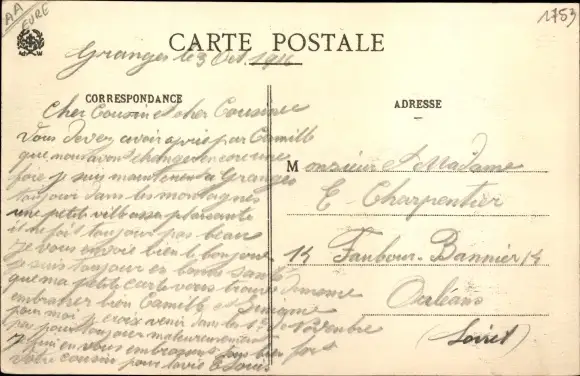 AA
EURE
1753
CARTE POSTALE
Granges le 3 Oct 1916
CORRESPONDANCE
Cher Cousin et cher Cousine
Vous devez avoir apris par Camille
que nous avont changer encore une
fois je suis maintenent a Granges
toujour dans les montagnes
une petit ville assez plaisante
il ne fait toujour pas beau
je vous envoie bien le bonjour
je suis toujour en bonne santé
que ma petite carte vous trouve de meme
embrasser bien Camille et
pour moi je crois venir dans les 1er de Novenbre
pas pour toujour maleureusement
je fini en vous embrassant tous bien fort
votre cousin pour la vie Louis
ADRESSE
Monsieur et Madame
E Charpentier
14 Faubour Bannier 14
Orléans
(Loiret)